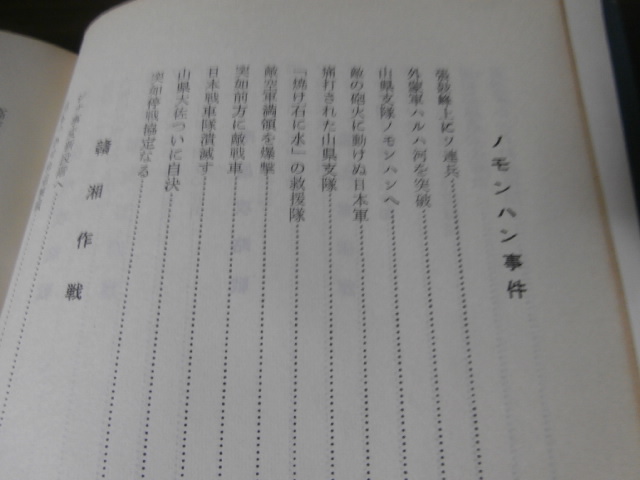 ノモンハン事件
張鼓峰上にソ連兵
外蒙軍ハルハ河を突破
山県支隊ノモンハンへ
敵の砲火に動けぬ日本軍
痛打された山県支隊
「焼け石に水」の救援隊
敵空軍満領を爆撃
突如前方に敵戦車
日本戦車隊潰滅す
山県大佐ついに自決
突如停戦協定なる
贛湘作戦